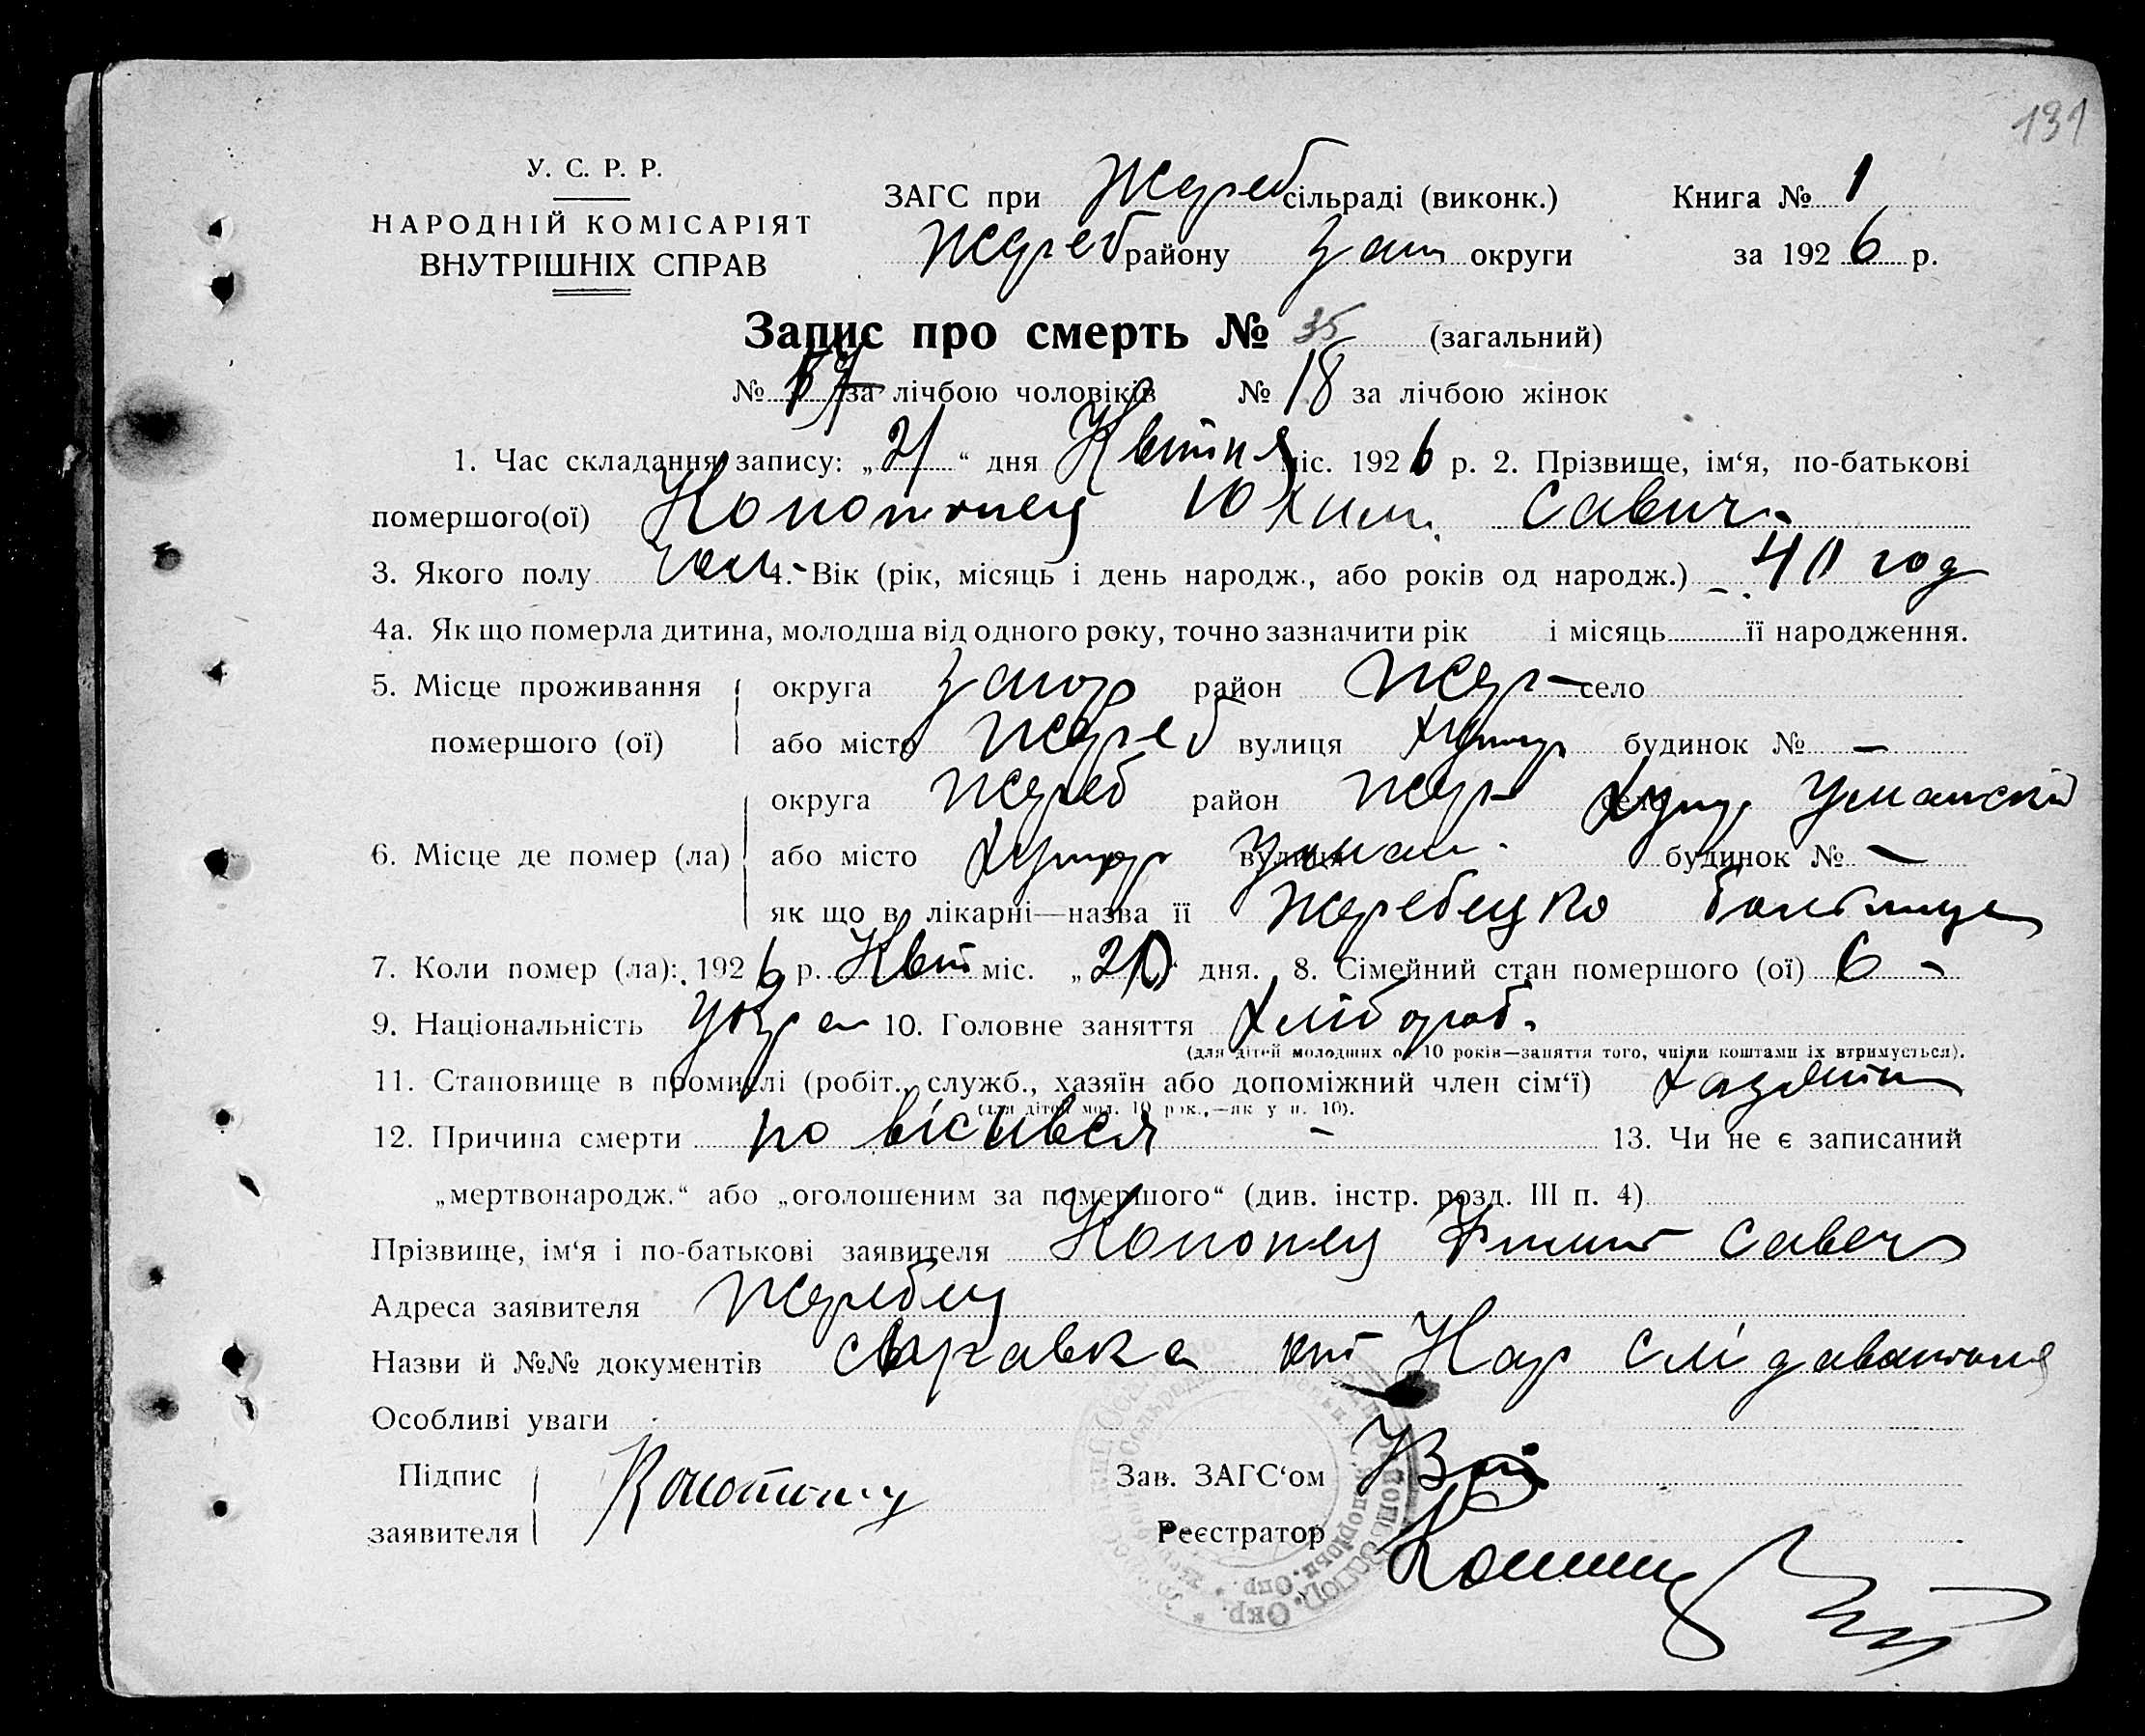 131
У. С. Р. Р.
НАРОДНІЙ КОМІСАРІЯТ
ВНУТРІШНІХ СПРАВ
ЗАГС при Жереб сільраді (виконк.) Книга № 1
Жереб району Зап округи за 1926 р.
Запис про смерть № 35 (загальний)
№ 17 за лічбою чоловіків № 18 за лічбою жінок
1. Час складання запису: „21“ дня Квітня міс. 1926 р. 2. Прізвище, ім‘я, по-батькові
помершого(ої) Конотопец Юхим Савич
3. Якого полу чол 4. Вік (рік, місяць і день народж., або років од народж.) 40 год
4а. Як що померла дитина, молодша від одного року, точно зазначити рік і місяць її народження.
5. Місце проживання округа Запор район Жер село
помершого (ої) або місто Жереб вулиця хутор будинок № —
округа Жереб район Жер село хутр Уманскій
6. Місце де помер (ла) або місто хутор вулиця Уман. будинок № —
як що в лікарні—назва її Жеребецко
7. Коли помер (ла): 1926 р. Квіт міс. „20“ дня. 8. Сімейний стан помершого (ої) 6 -
9. Національність 10. Головне заняття хлібороб.
(для дітей молодших од 10 років—заняття того, чиїми коштами їх втримується).
11. Становище в промислі (робіт., служб., хазяїн або допоміжний член сім‘ї) хазяїн
(для дітей мол. 10 рок.,—як у п. 10).
12. Причина смерти повісився - 13. Чи не є записаний
„мертвонародж.“ або „оголошеним за помершого“ (див. інстр. розд. III п. 4)
Прізвище, ім‘я і по-батькові заявителя Конопец Савеч
Адреса заявителя Жеребец
Назви й №№ документів справка от Нар слідавателя
Особливі уваги
Підпис
заявителя
Зав. ЗАГС‘ом
Реєстратор